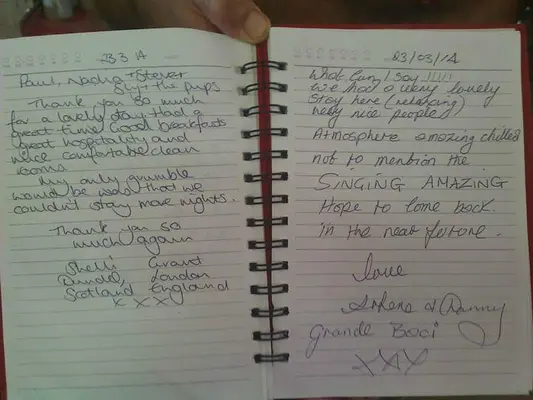 23 14
Paul, Nadia + Stever
Sly + the pups
Thank you so much
for a lovely stay. Had a
great time. Good breakfasts
great hospitality and
nice comfortable clean
rooms
My only grumble
would be was that we
couldn't stay more nights.
Thank you so
much again
Shelli Grant
Dundee, London
Scotland England
x x x
23/03/14
What can I say !!!!!
We had a very lovely
stay here (relaxing)
very nice people
Atmosphere amazing chilled
not to mention the
SINGING AMAZING
Hope to come back.
in the near future.
love
& Danny
Grande Boci
XXX